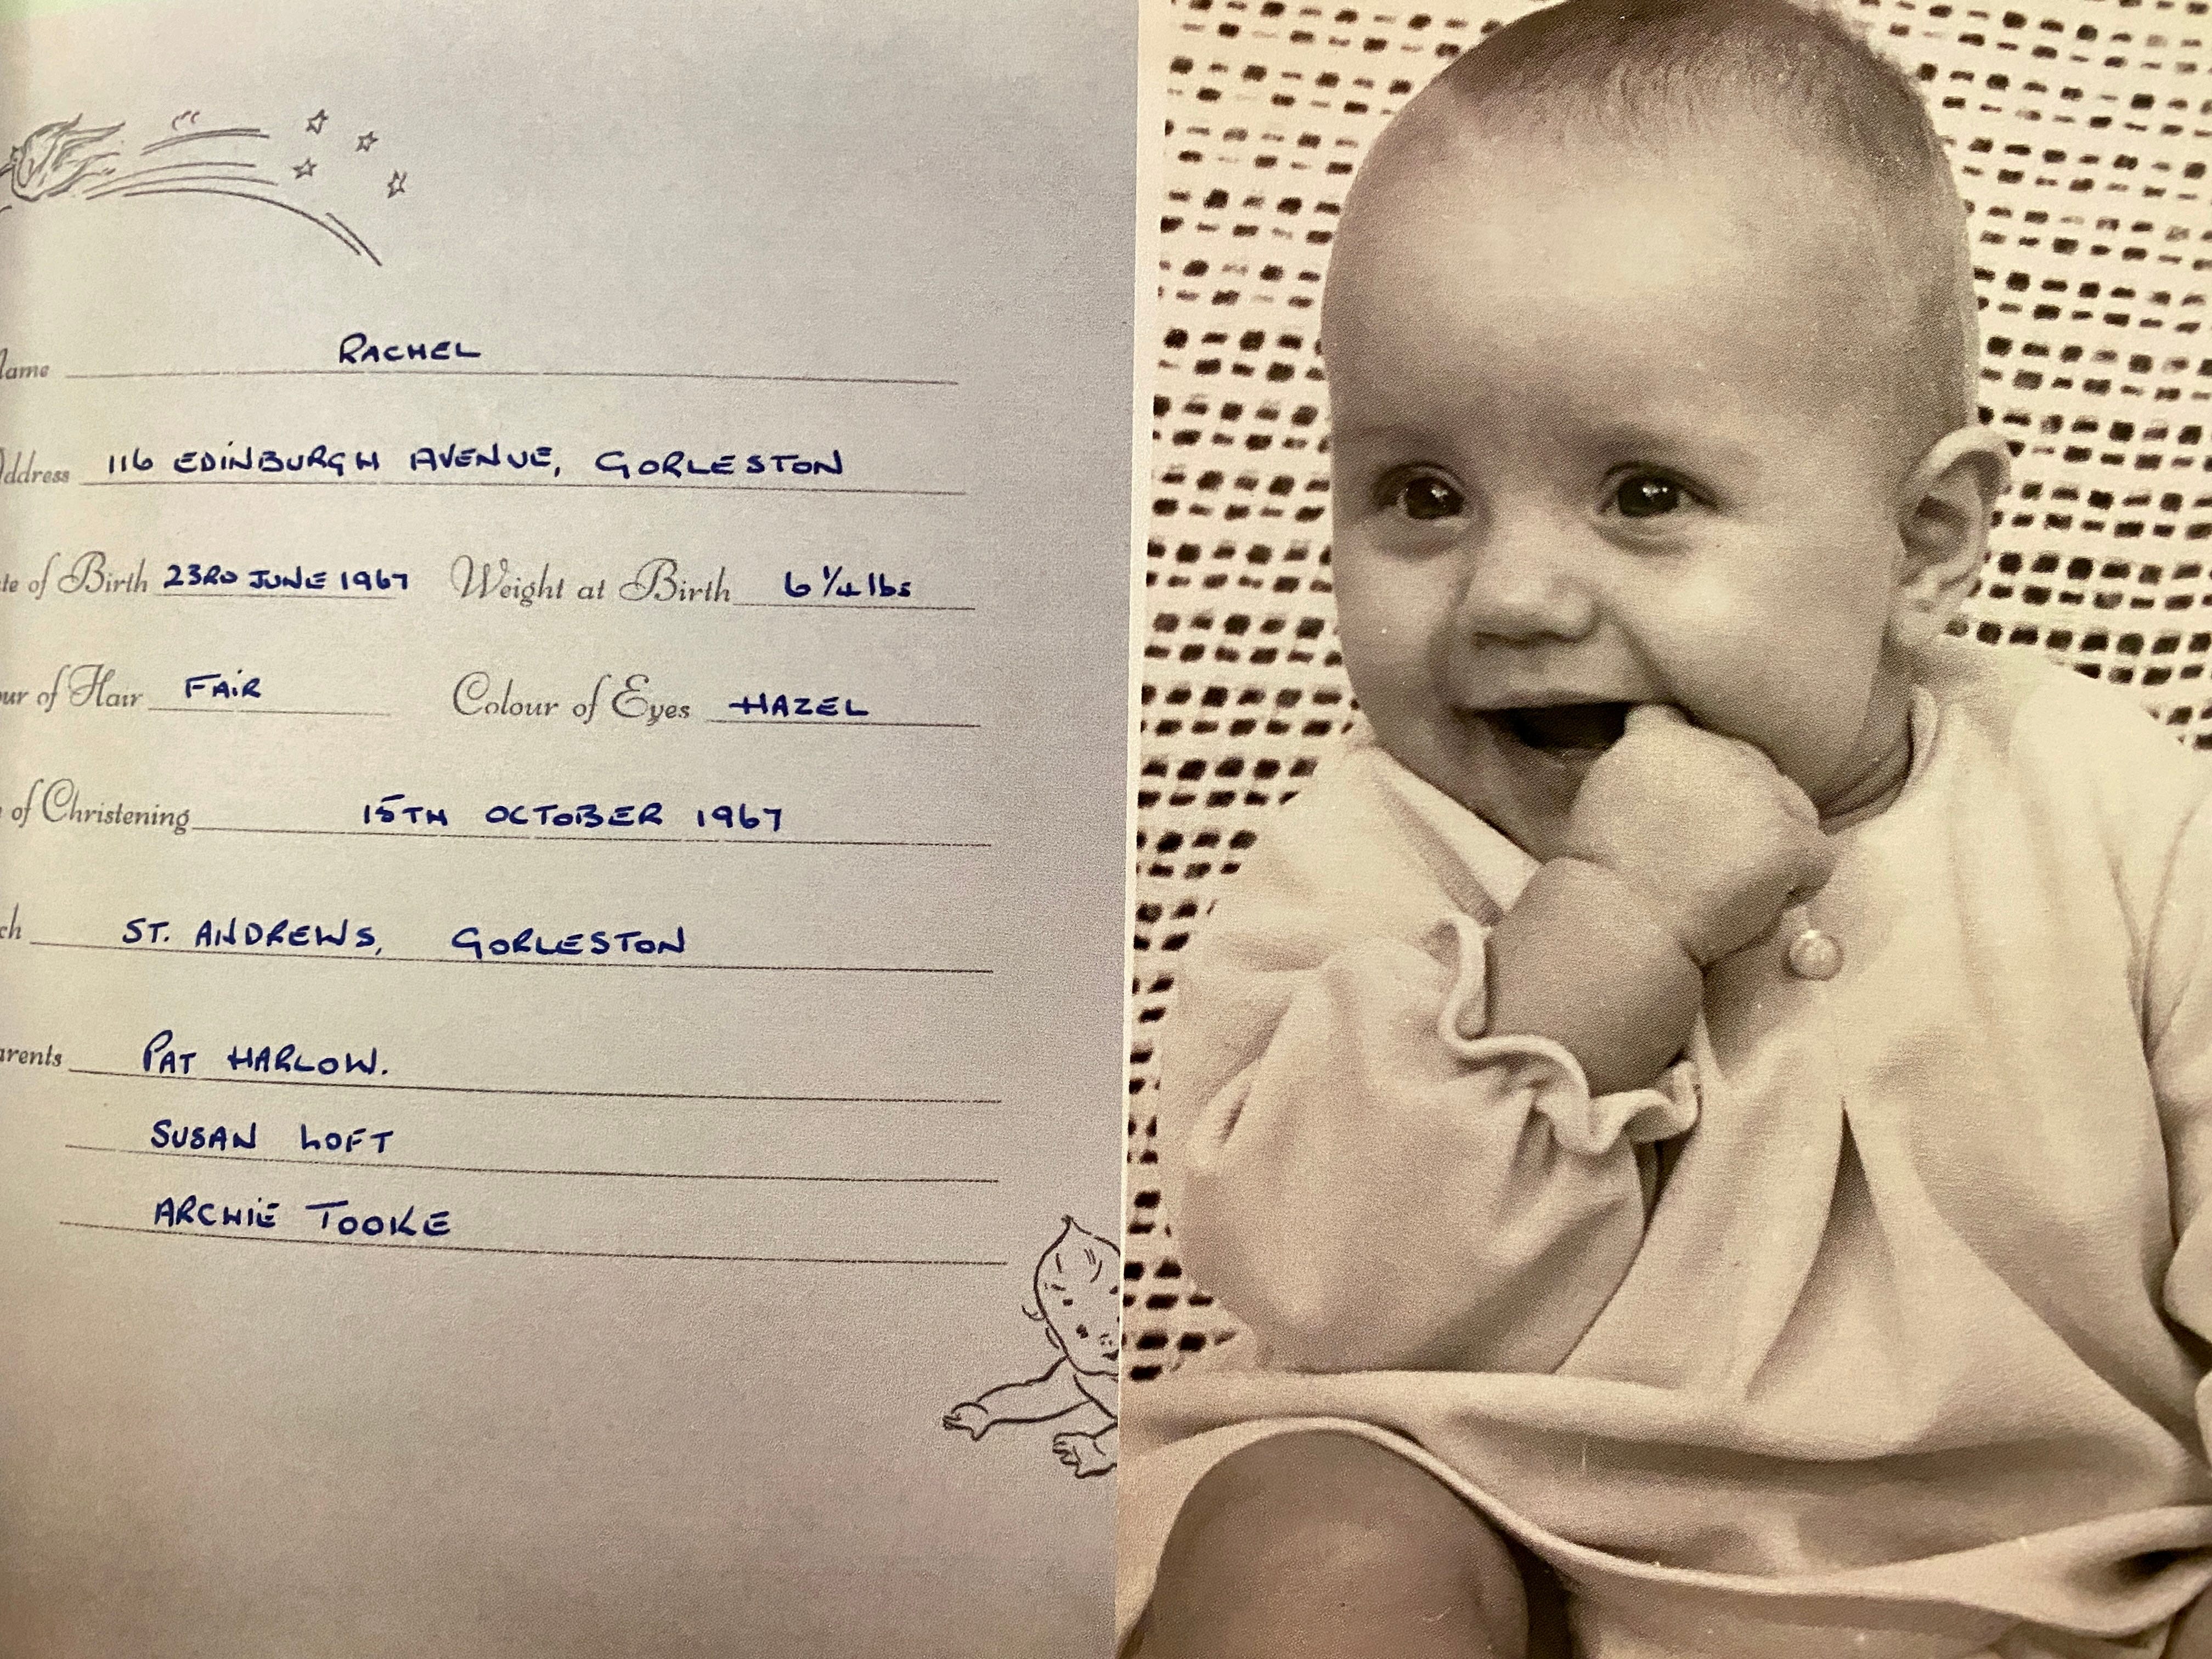 Name RACHEL
Address 116 EDINBURGH AVENUE, GORLESTON
te of Birth 23RD JUNE 1967 Weight at Birth 6 1/4 lbs
ur of Hair FAIR Colour of Eyes HAZEL
of Christening 15TH OCTOBER 1967
ch ST. ANDREWS, GORLESTON
arents PAT HARLOW.
SUSAN LOFT
ARCHIE TOOKE